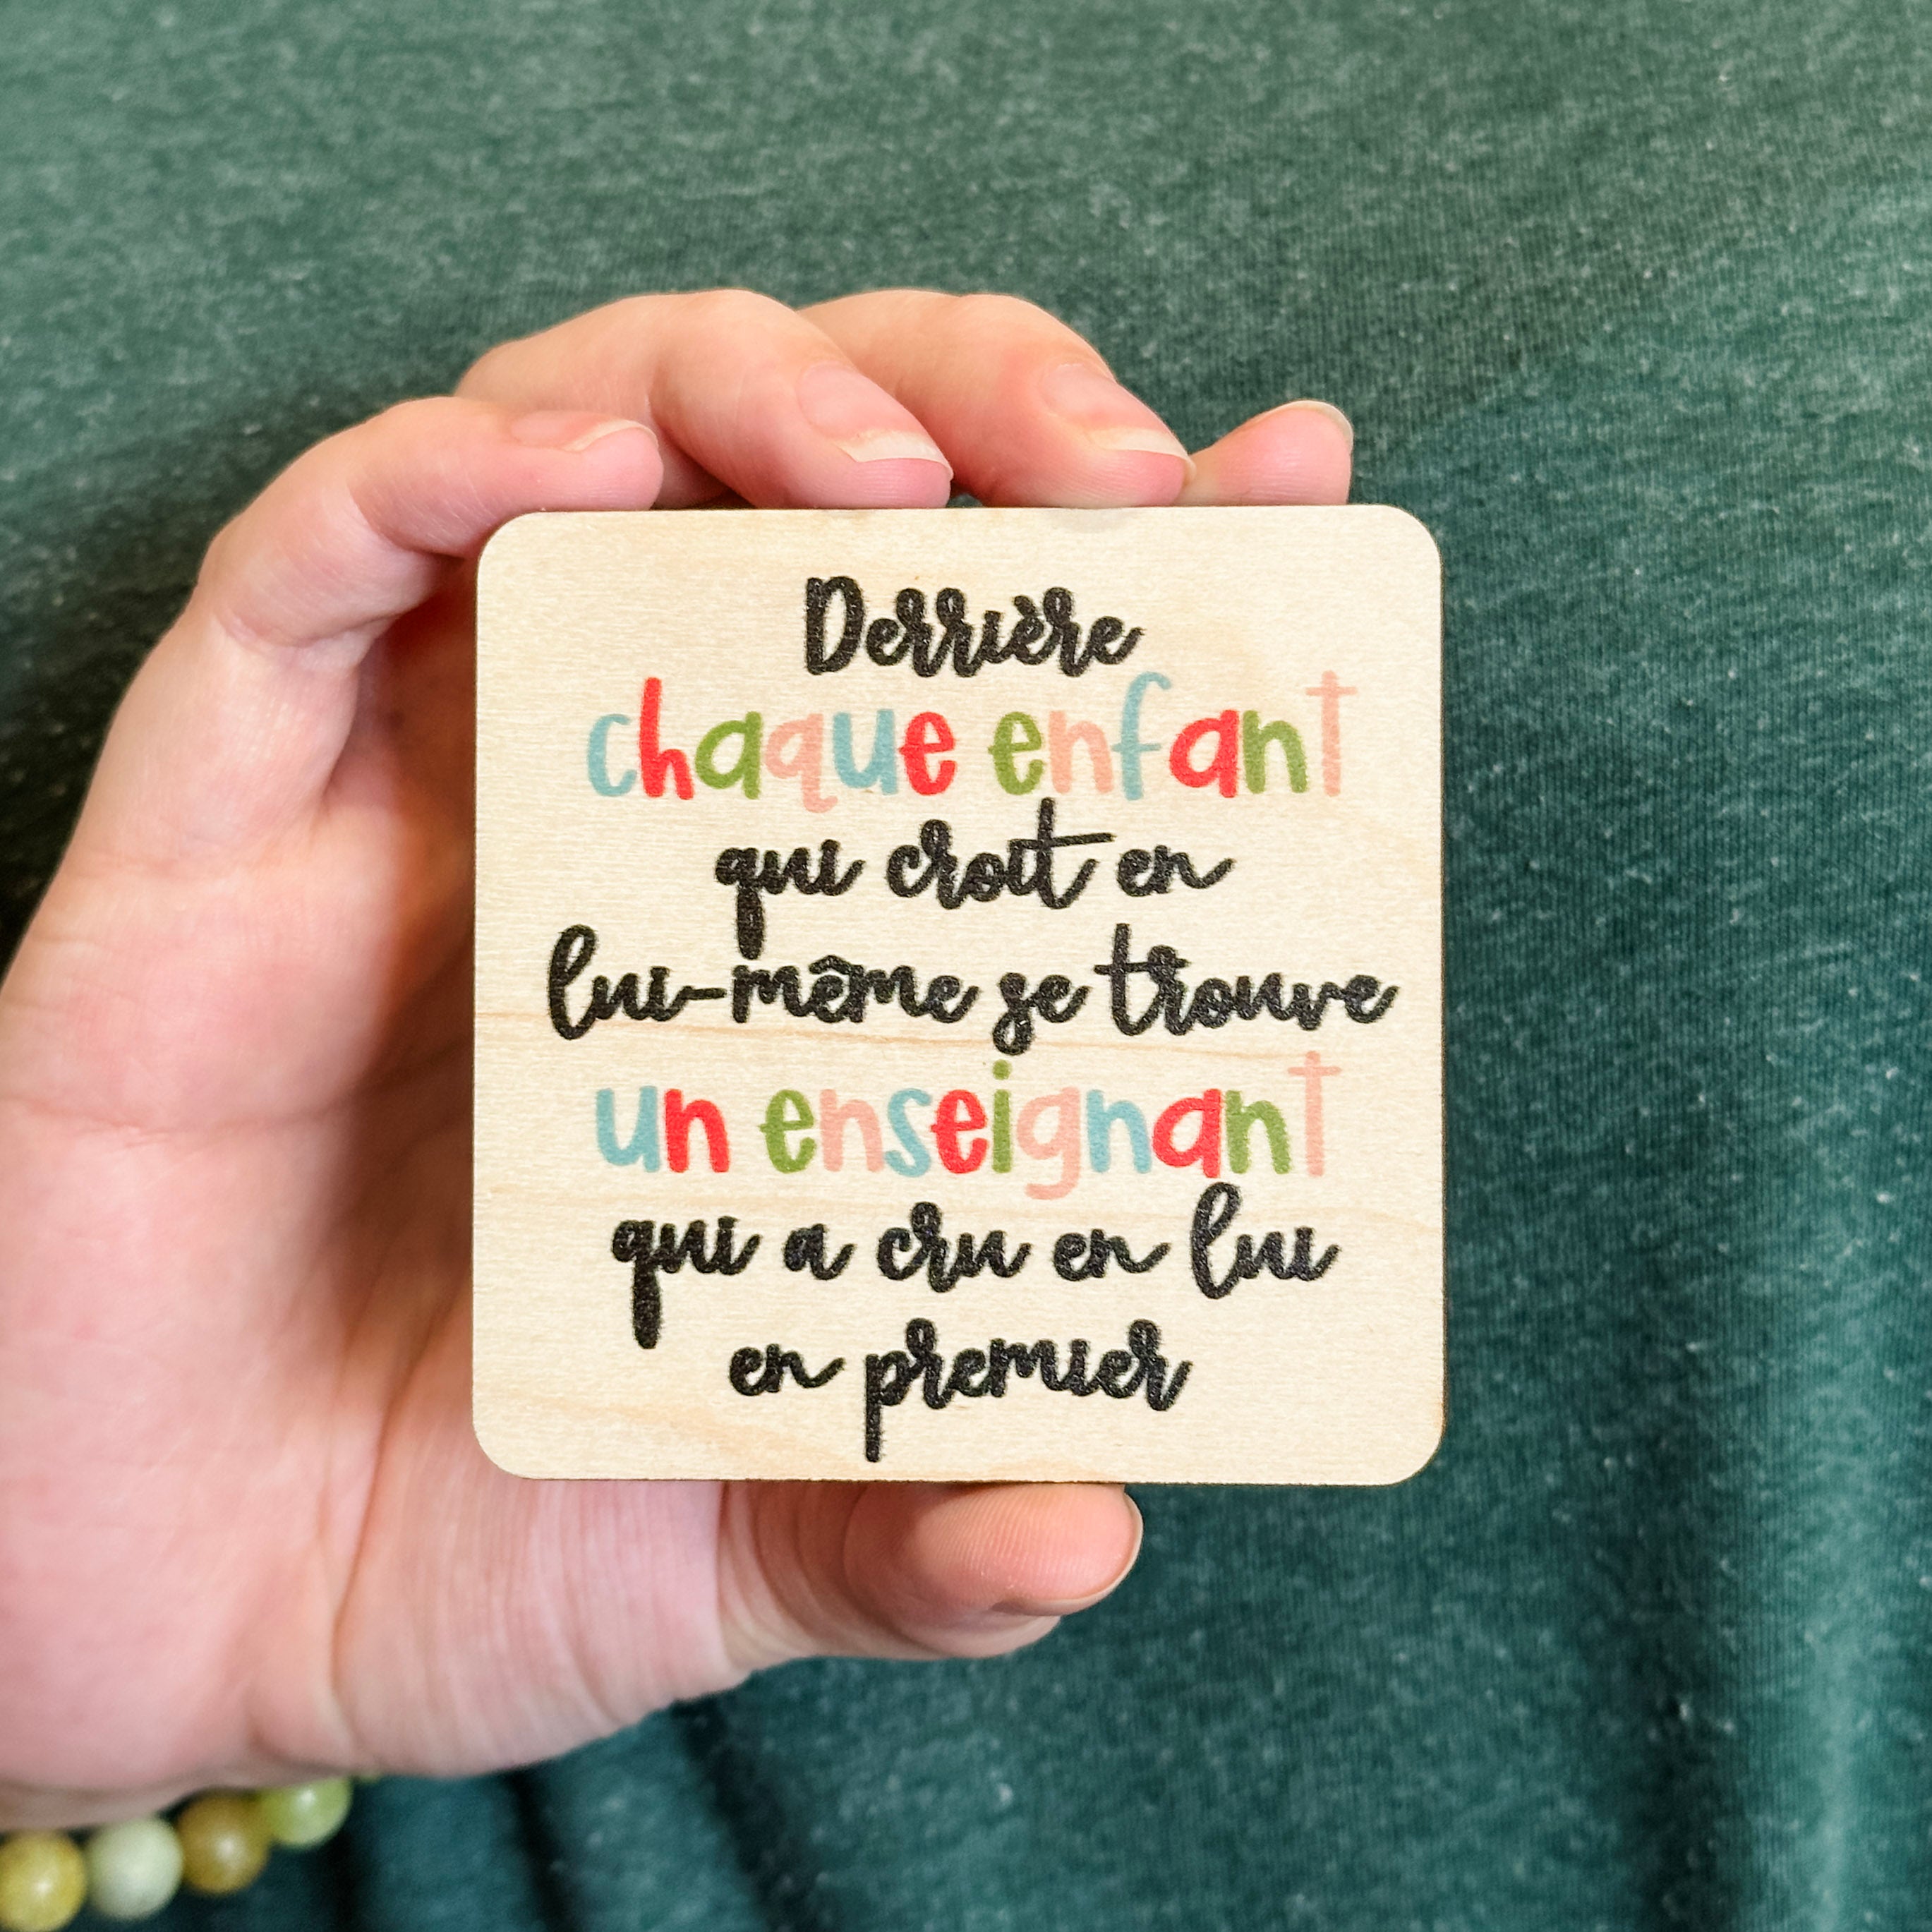 Derrière
chaque enfant
qui croit en
lui-même se trouve
un enseignant
qui a cru en lui
en premier